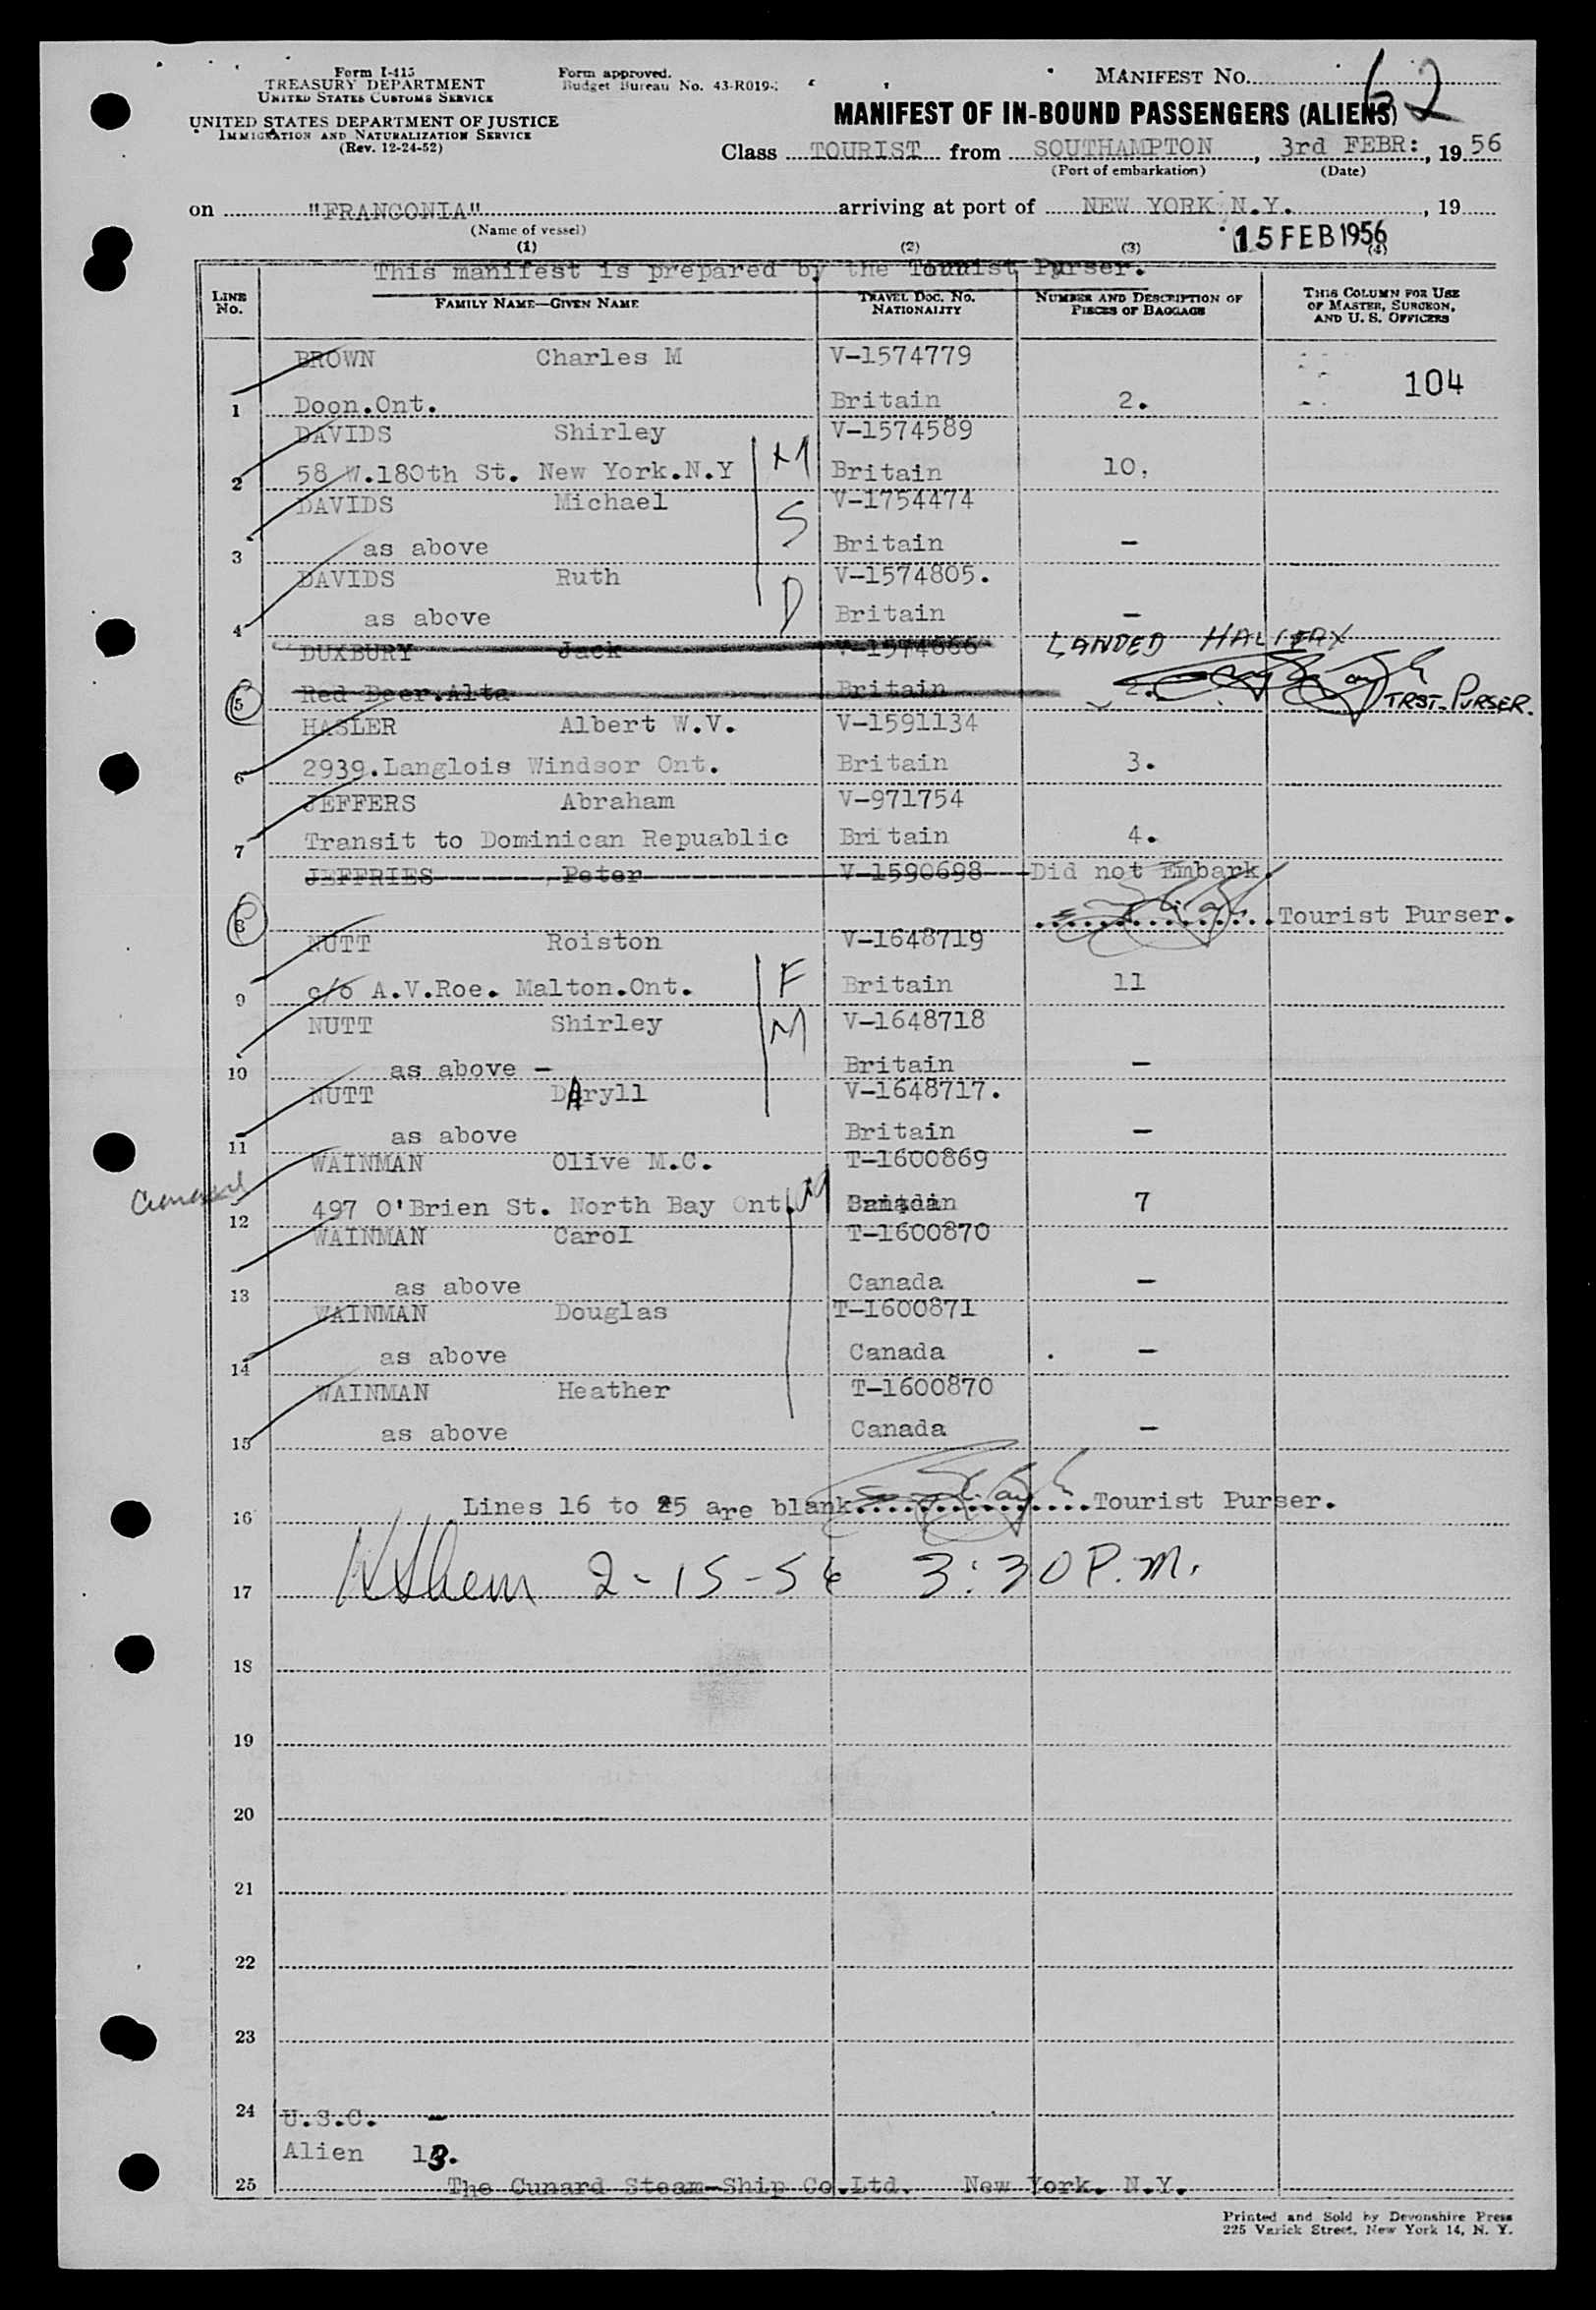 Form I-415
TREASURY DEPARTMENT
UNITED STATES CUSTOMS SERVICE
UNITED STATES DEPARTMENT OF JUSTICE
IMMIGRATION AND NATURALIZATION SERVICE
(Rev. 12-24-52)
Form approved.
Budget Bureau No. 43-R019-
MANIFEST NO. 62
MANIFEST OF IN-BOUND PASSENGERS (ALIENS)
Class TOURIST from SOUTHAMPTON, 3rd FEBR:, 19 56
(Port of embarkation) (Date)
on "FRANCONIA" arriving at port of NEW YORK N.Y., 19
(Name of vessel)
15 FEB 1956
(1) (2) (3) (4)
This manifest is prepared by the Tourist Purser.
LINE NO. FAMILY NAME—GIVEN NAME TRAVEL DOC. NO. NATIONALITY NUMBER AND DESCRIPTION OF PIECES OF BAGGAGE THIS COLUMN FOR USE OF MASTER, SURGEON, AND U. S. OFFICERS
BROWN Charles M V-1574779
104
1 Doon.Ont. Britain 2.
DAVIDS Shirley V-1574589
2 58 W.180th St. New York.N.Y M Britain 10.
DAVIDS Michael S V-1754474
3 as above Britain -
DAVIDS Ruth V-1574805.
4 as above D Britain -
DUXBURY Jack V-1574666 LANDED HALIFAX
5 Red Deer.Alta Britain 2. TRST. PURSER.
HASLER Albert W.V. V-1591134
6 2939.Langlois Windsor Ont. Britain 3.
JEFFERS Abraham V-971754
7 Transit to Dominican Repuablic Britain 4.
JEFFRIES Peter V-1590698 Did not Embark.
8 Tourist Purser.
NUTT Roiston V-1648719
9 c/o A.V.Roe. Malton.Ont. F Britain 11
NUTT Shirley M V-1648718
10 as above - Britain -
NUTT DAryll V-1648717.
11 as above Britain -
WAINMAN Olive M.C. T-1600869
Cunard
12 497 O'Brien St. North Bay Ont. M Canada 7
WAINMAN Carol T-1600870
13 as above Canada -
WAINMAN Douglas T-1600871
14 as above Canada -
WAINMAN Heather T-1600870
15 as above Canada -
16 Lines 16 to 25 are blank. Tourist Purser.
17 2-15-56 3:30 P.M.
18
19
20
21
22
23
24 U.S.C. -
Alien 13.
25 The Cunard Steam-Ship Co.Ltd. New York. N.Y.
Printed and Sold by Devonshire Press
225 Varick Street, New York 14, N. Y.